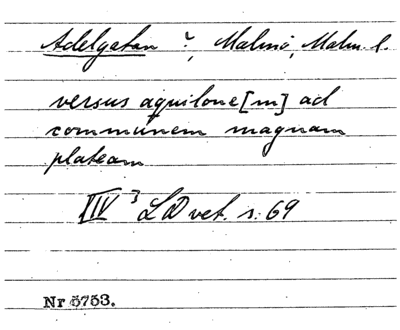 Adelgatan ?, Malmö, Malm. l.
versus aquilone[m] ad
communem magnam
plateam
XIV³ LD vet. s. 69
Nr 5753.